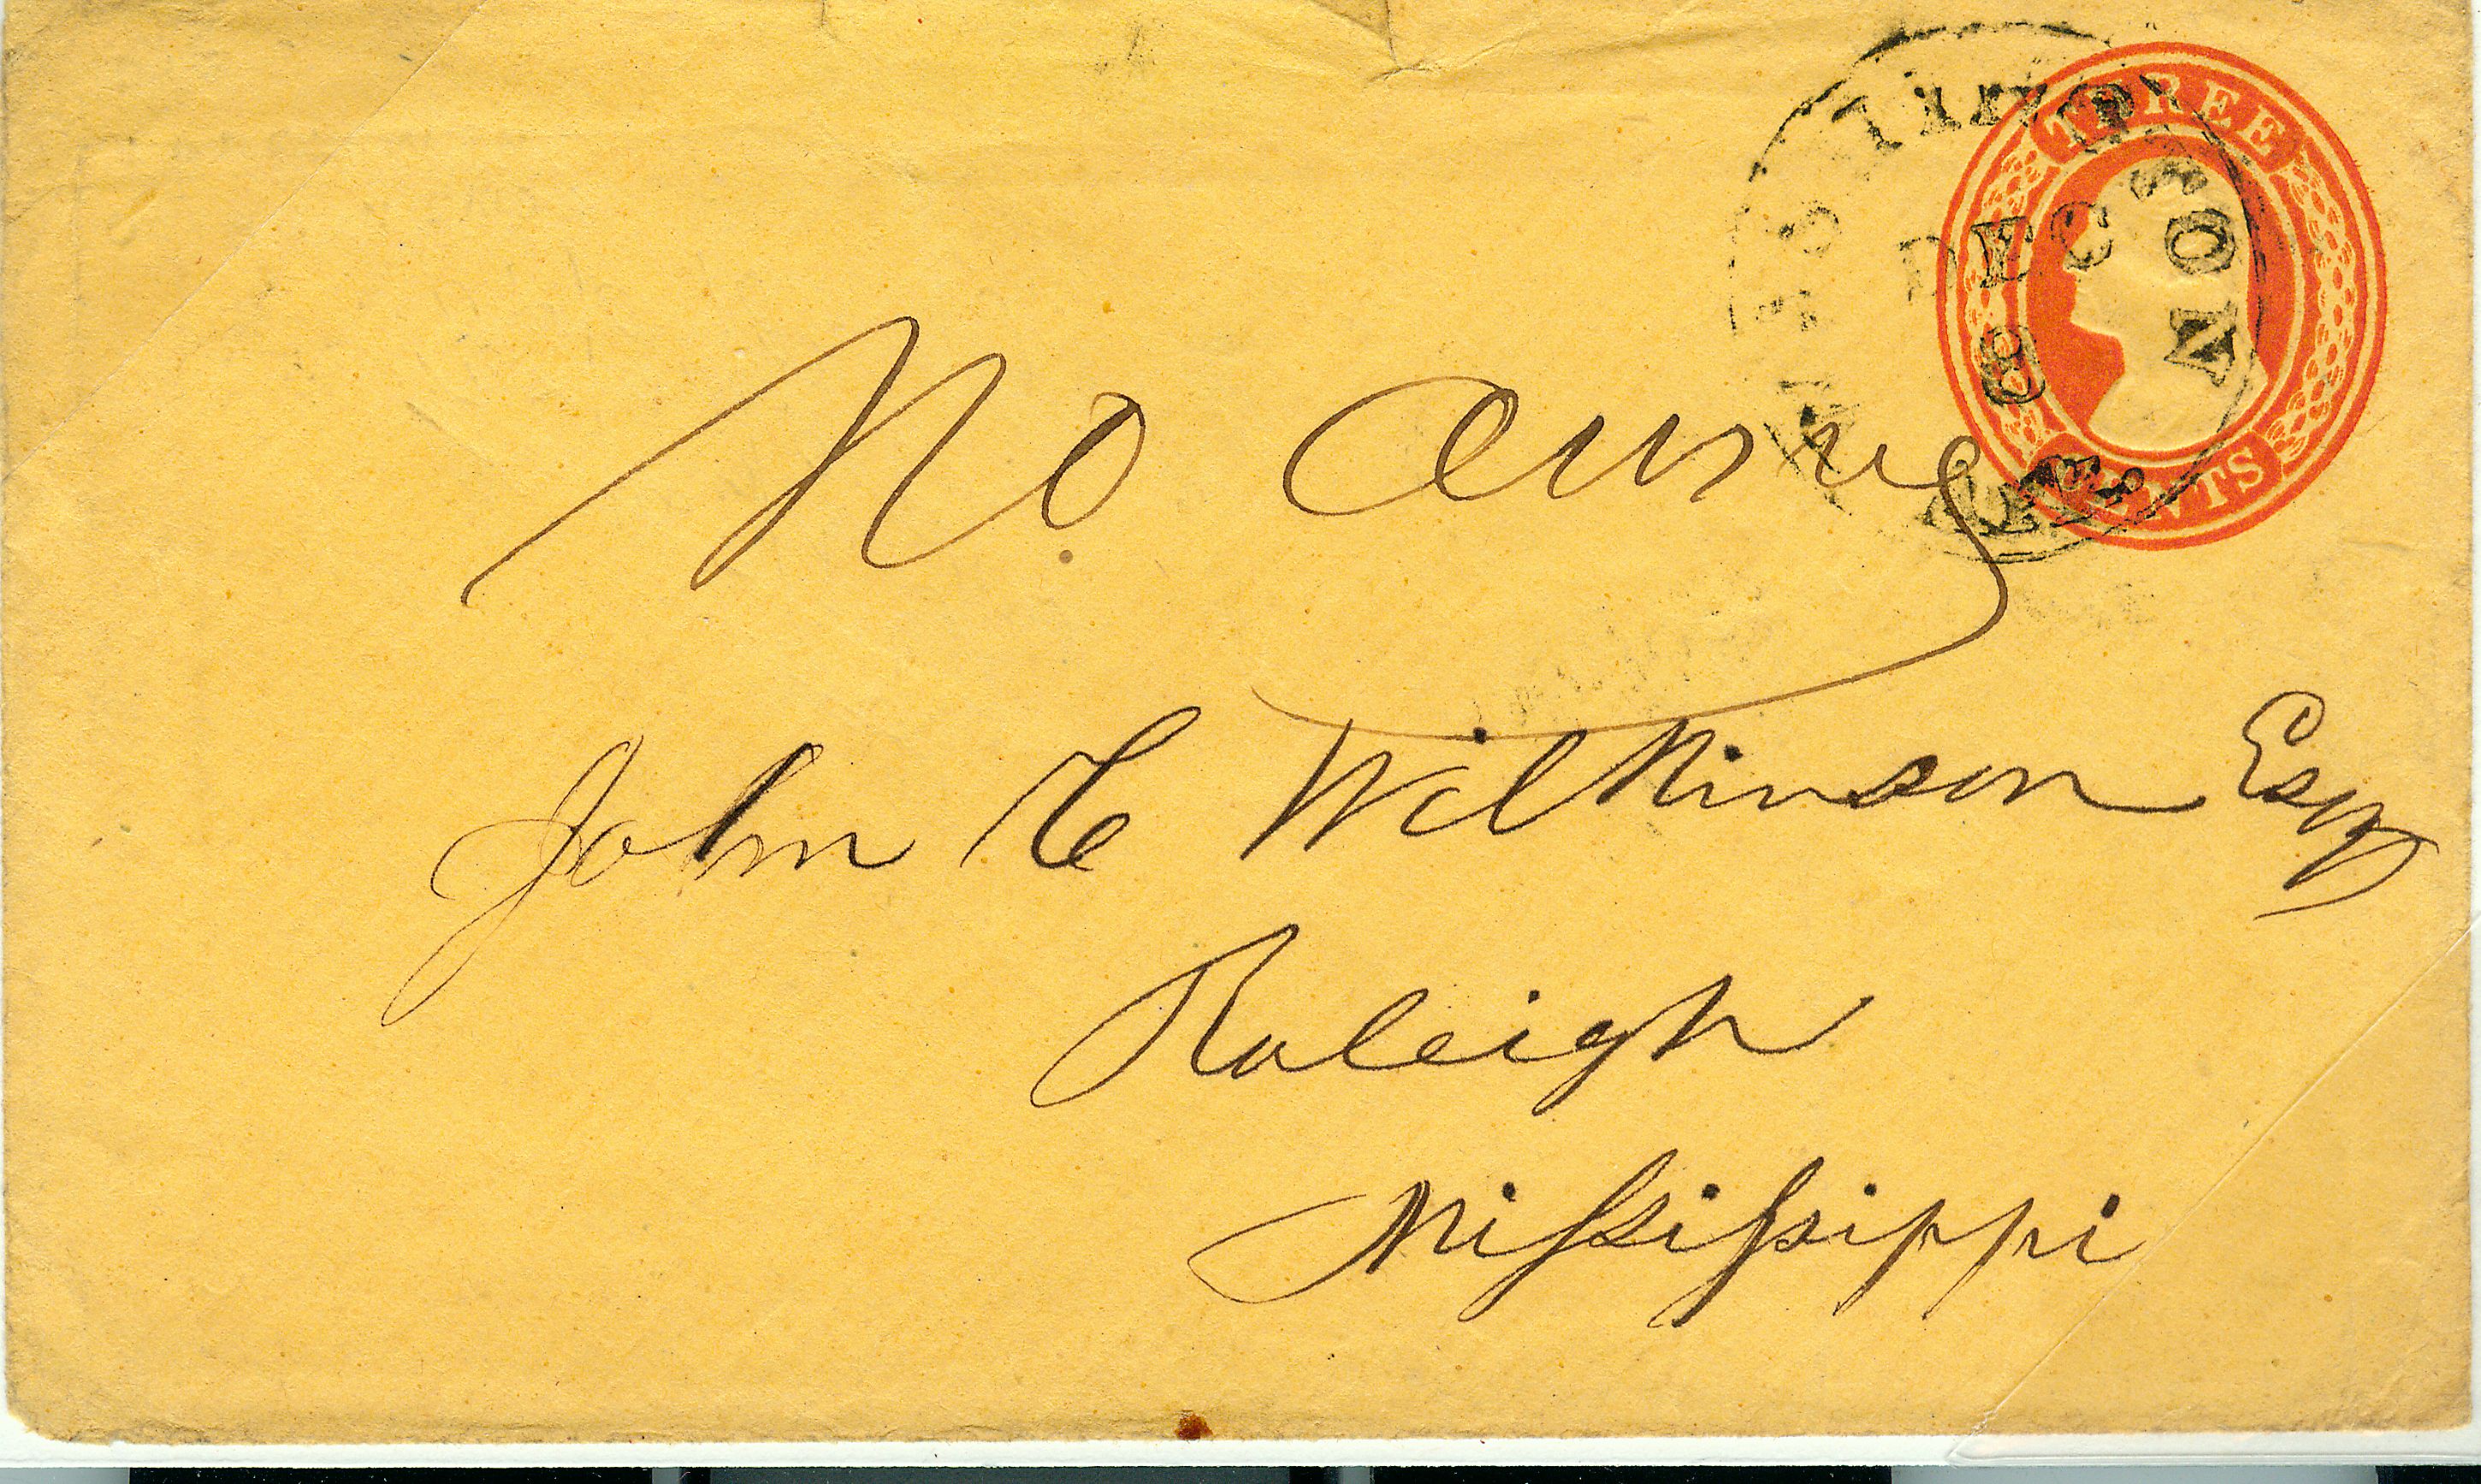 THREE
DEC
8
CENTS
No
John C Wilkinson Esq
Raleigh
Mississippi